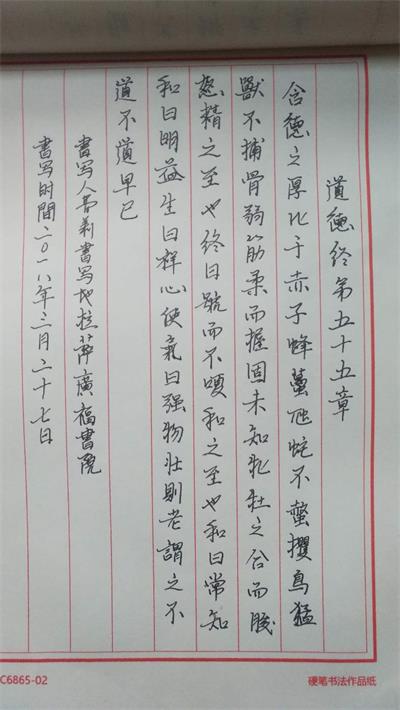 道德经第五十五章
含德之厚比于赤子蜂蠆虺蛇不螫攫鳥猛
獸不捕骨弱筋柔而握固未知牝牡之合而朘
怒精之至也终日號而不嗄和之至也和曰常知
和曰明益生曰祥心使氣曰强物壮則老謂之不
道不道早已
書写人書写地拉萨廣福書院
書写时間二〇一八年三月二十七日
C6865-02
硬笔书法作品纸